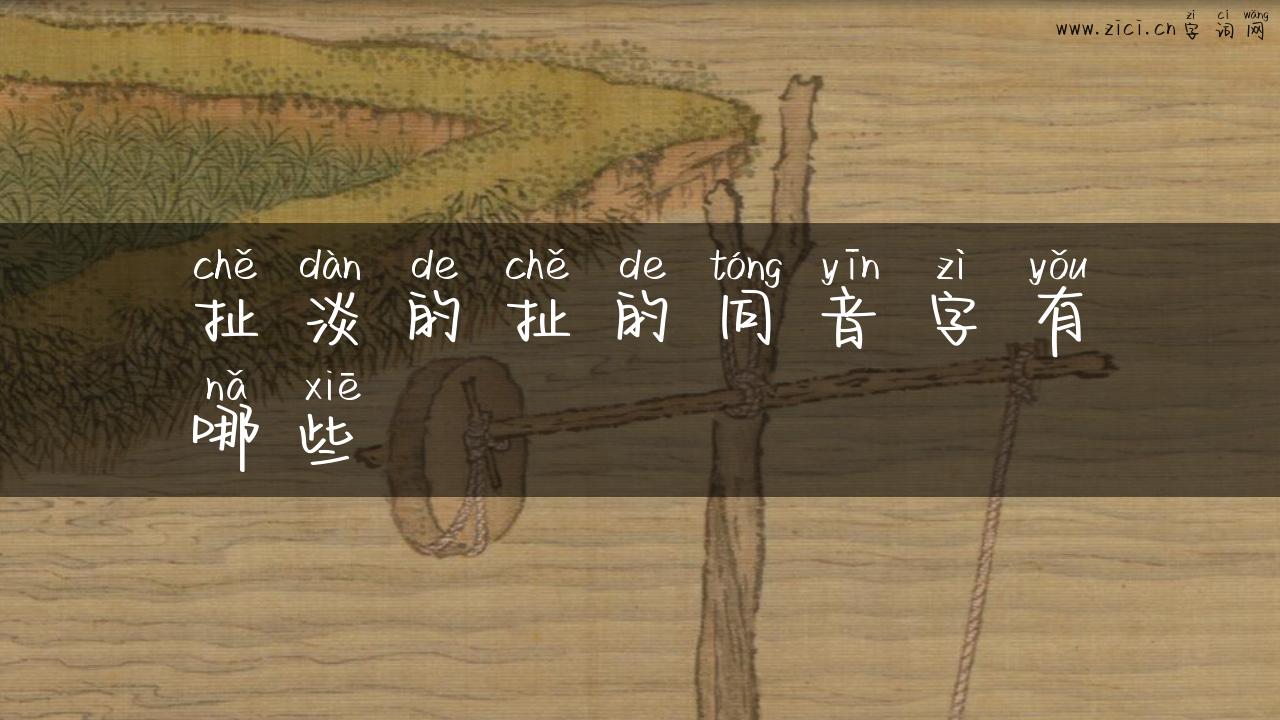 zì cí wǎng
www.zici.cn 字词网
chě dàn de chě de tóng yīn zì yǒu
扯淡的扯的同音字有
nǎ xiē
哪些